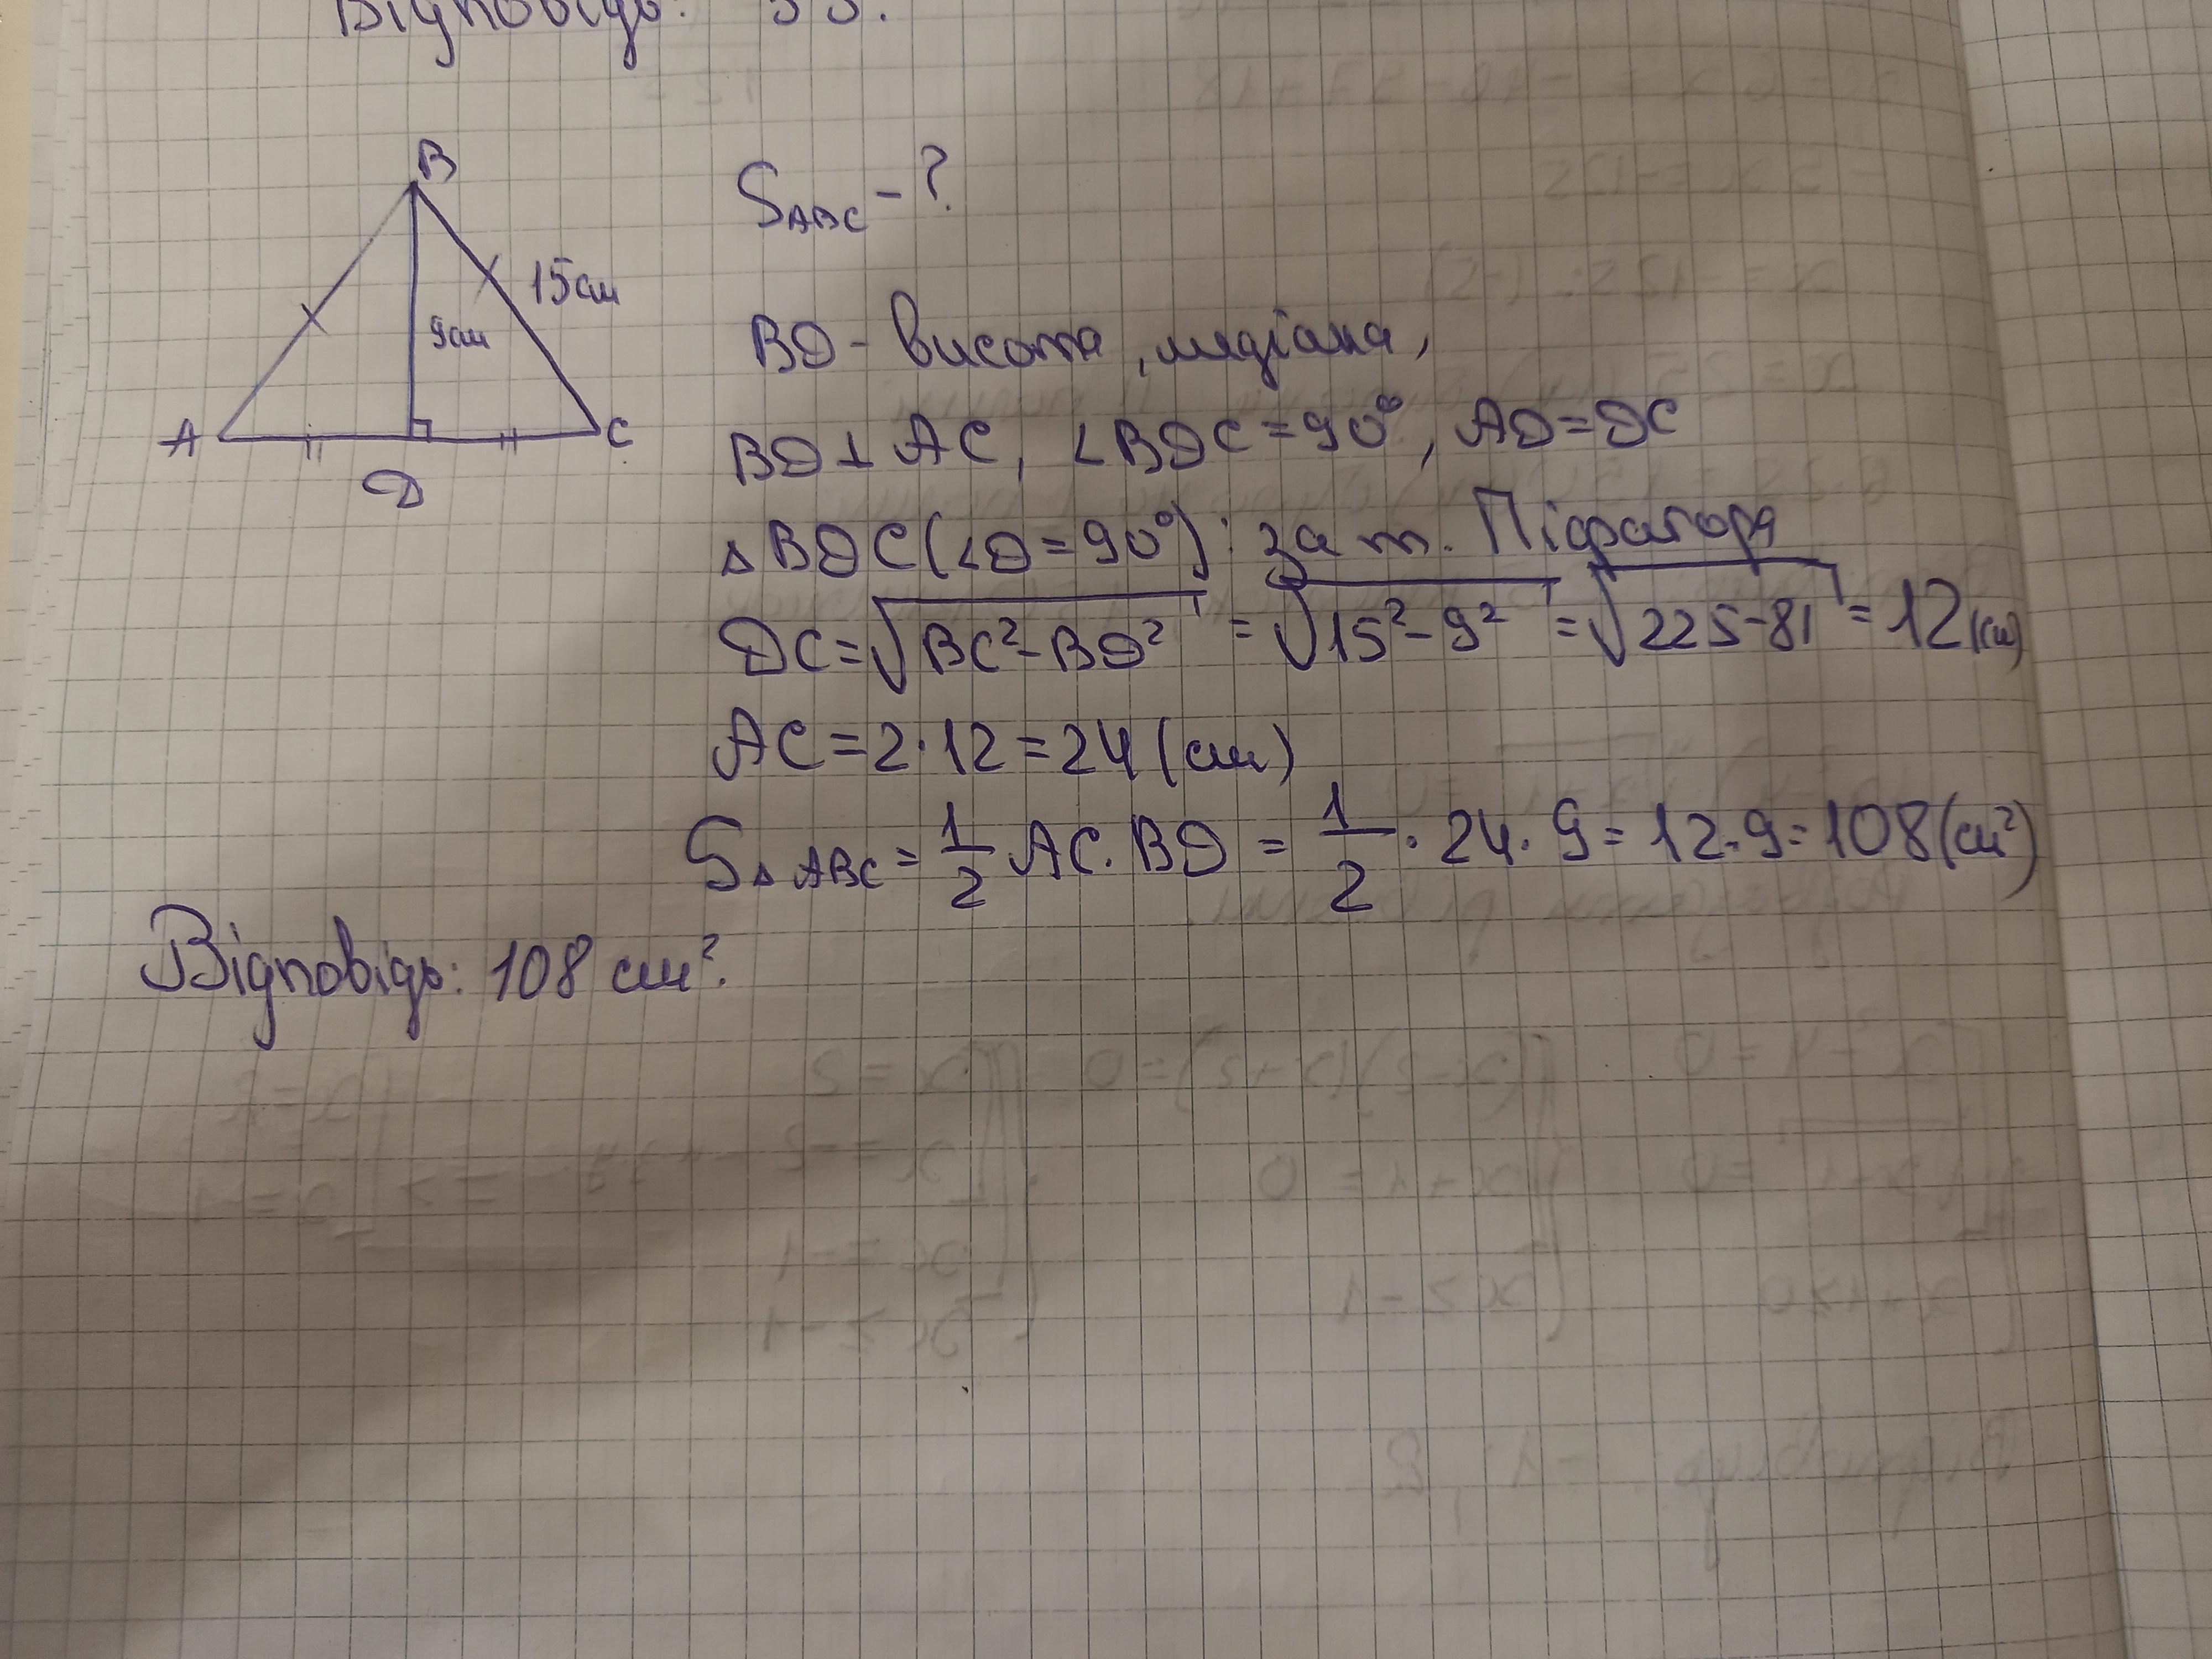 Відповідь: 
B
15см
9см
A
C
D
S_ABC - ?
BD - висота, медіана,
BD ⊥ AC, ∠BDC = 90°, AD = DC
△BDC (∠D = 90°): за т. Піфагора
DC = √(BC² - BD²) = √(15² - 9²) = √(225 - 81) = 12 (см)
AC = 2 · 12 = 24 (см)
S_△ABC = 1/2 AC · BD = 1/2 · 24 · 9 = 12 · 9 = 108 (см²)
Відповідь: 108 см².